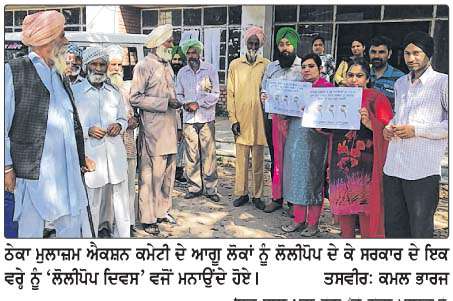 ਠੇਕਾ ਮੁਲਾਜ਼ਮ ਐਕਸ਼ਨ ਕਮੇਟੀ ਦੇ ਆਗੂ ਲੋਕਾਂ ਨੂੰ ਲੋਲੀਪੋਪ ਦੇ ਕੇ ਸਰਕਾਰ ਦੇ ਇਕ
ਵਰ੍ਹੇ ਨੂੰ ‘ਲੋਲੀਪੋਪ ਦਿਵਸ’ ਵਜੋਂ ਮਨਾਉਂਦੇ ਹੋਏ। ਤਸਵੀਰ: ਕਮਲ ਭਾਰਜ